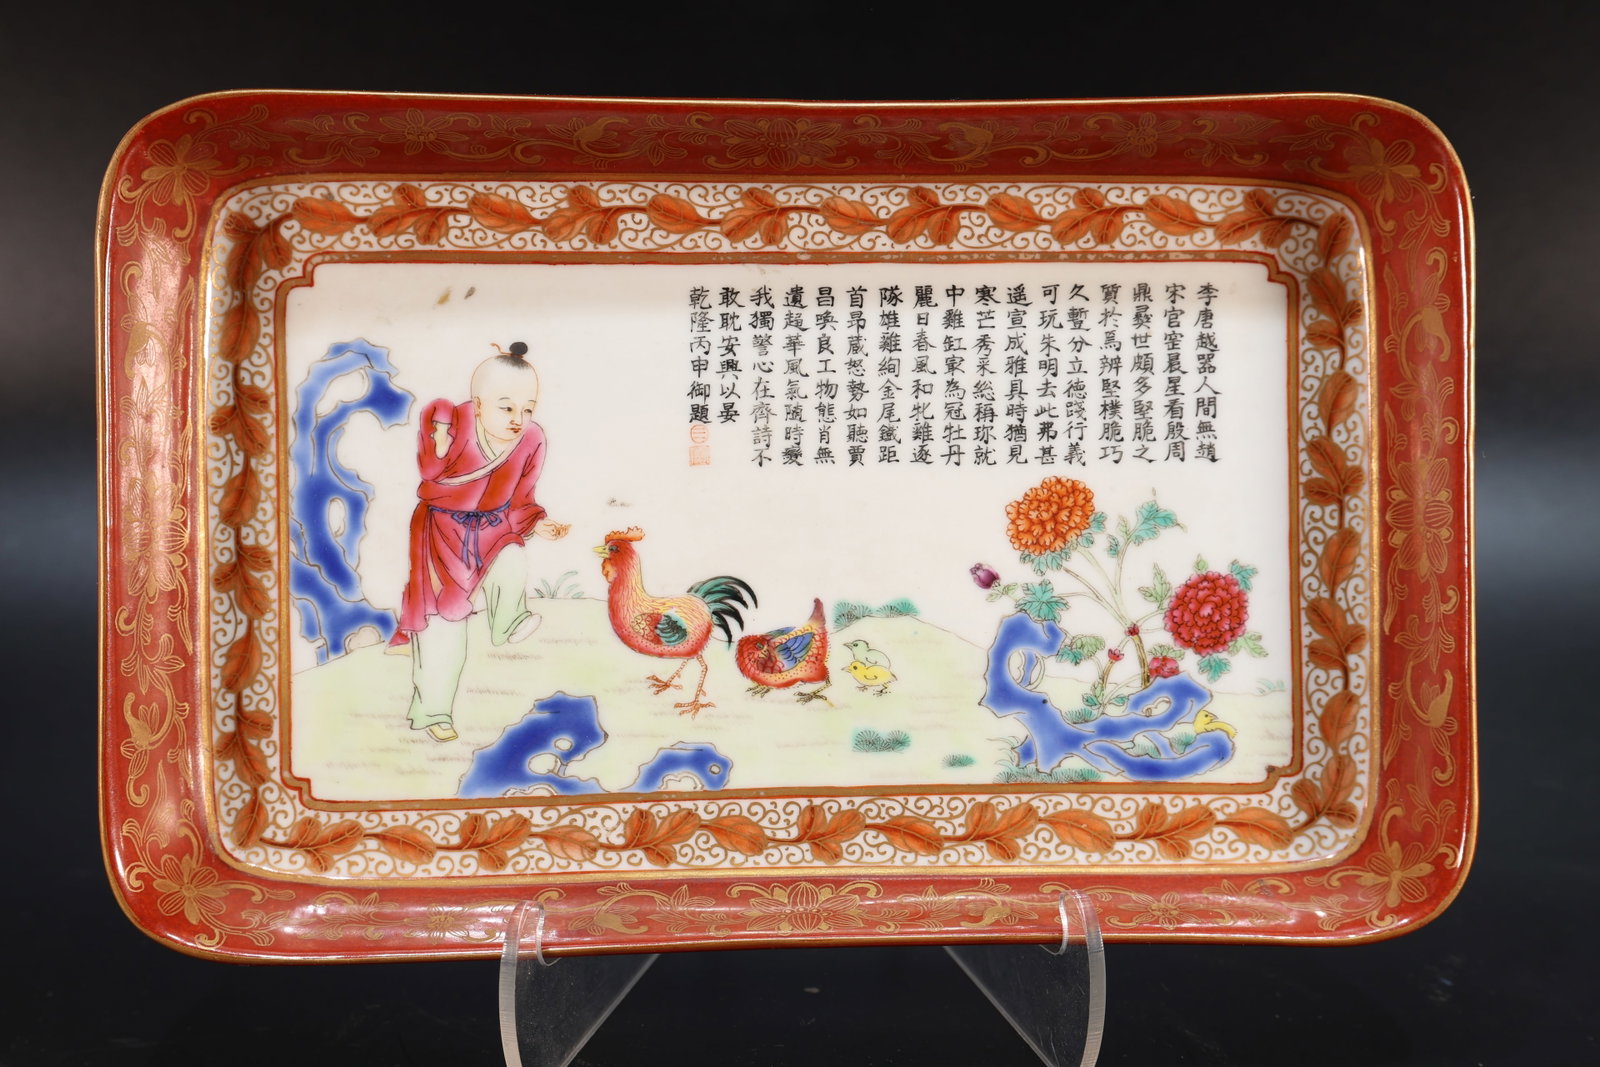 李唐越器人間無趙
宋官窑晨星看殷周
鼎彞世頗多堅脆之
質於焉辨堅樸脆巧
久暫分立德踐行義
可玩朱明去此弗甚
遥宣成雅具時猶見
寒芒秀采総稱珎就
中雞缸寧為冠牡丹
麗日春風和牝雞逐
隊雄雞絢金尾鐵距
首昂藏怒勢如聽賈
昌喚良工物態肖無
遺趍華風氣随時變
我獨警心在齊詩不
敢耽安興以晏
乾隆丙申御題